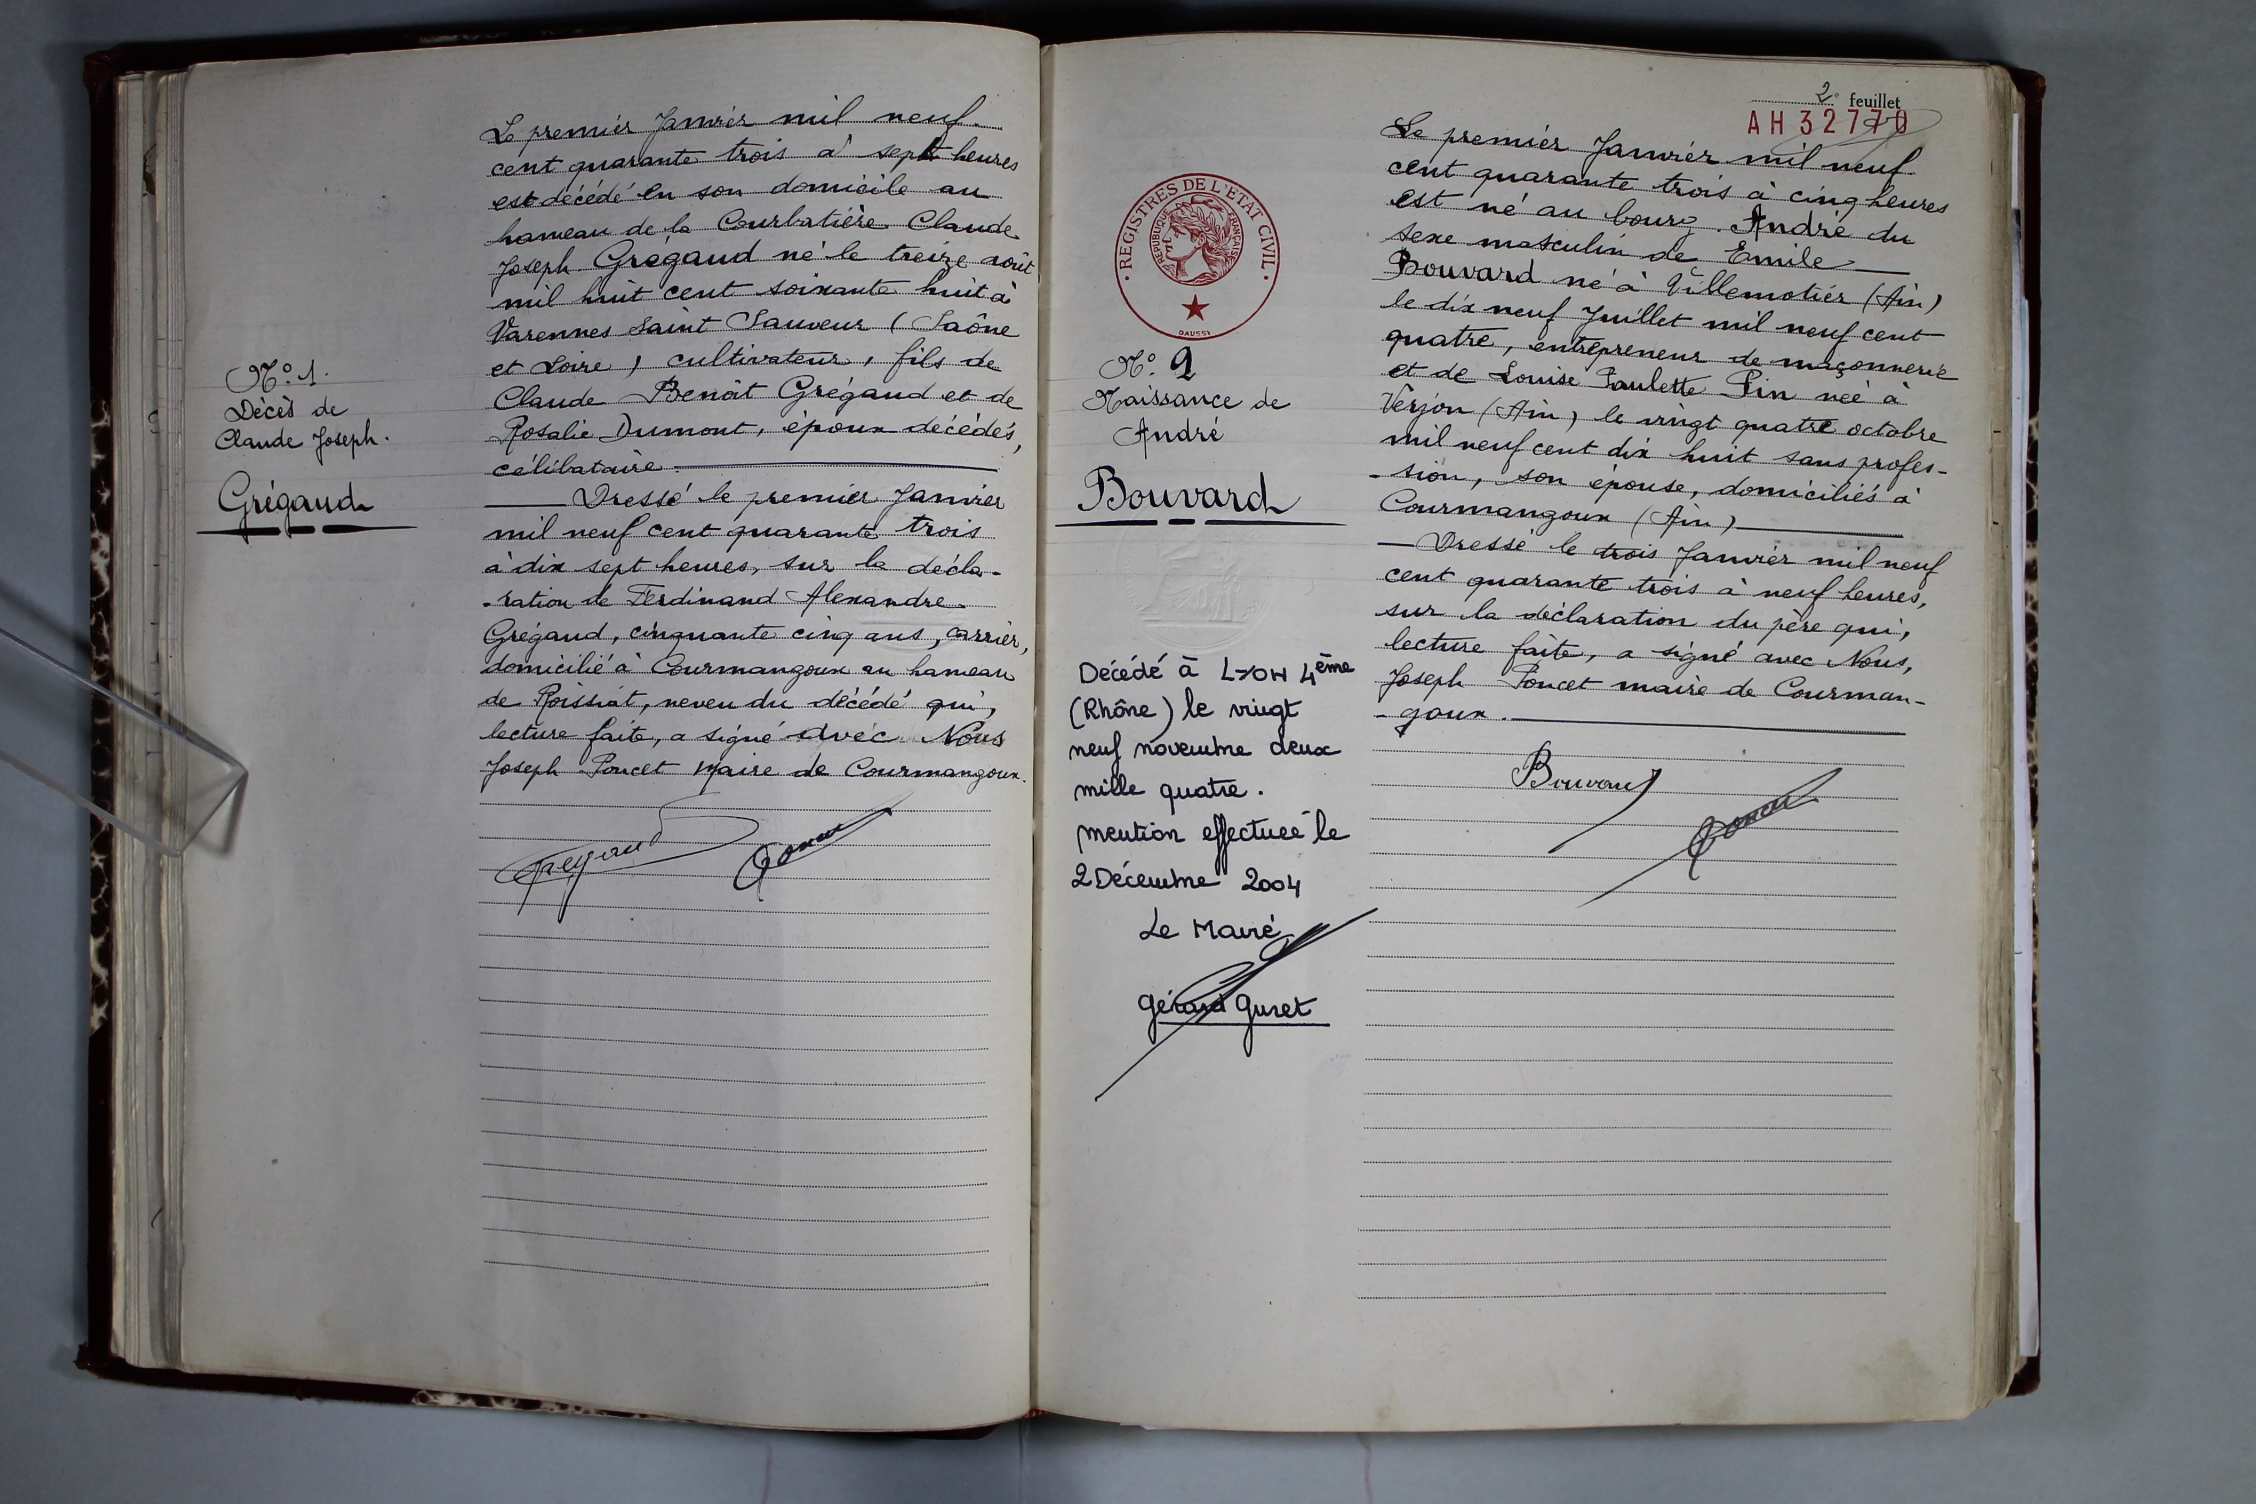 Le premier Janvier mil neuf
cent quarante trois à sept heures
est décédé en son domicile au
hameau de la Courbatière Claude
Joseph Grégaud né le treize août
mil huit cent soixante huit à
Varennes Saint Sauveur (Saône
et Loire), cultivateur, fils de
Claude Benoît Grégaud et de
Rosalie Dumont, époux décédés,
célibataire.
Dressé le premier Janvier
mil neuf cent quarante trois
à dix sept heures, sur la décla-
-ration de Ferdinand Alexandre
Grégaud, cinquante cinq ans, carrier,
domicilié à Courmangoux au hameau
de Roissiat, neveu du décédé qui,
lecture faite, a signé avec Nous
Joseph Poncet Maire de Courmangoux.
Nº 1.
Décès de
Claude Joseph.
Grégaud
Grégaud Poncet
2e feuillet
AH 32770
REGISTRES DE L'ETAT CIVIL
REPUBLIQUE FRANÇAISE
DAUSSY
Nº 2
Naissance de
André
Bouvard
Décédé à LYON 4ème
(Rhône) le vingt
neuf novembre deux
mille quatre.
mention effectuée le
2 Décembre 2004
Le Maire
Gérard Guret
Le premier Janvier mil neuf
cent quarante trois à cinq heures
est né au bourg André du
sexe masculin de Emile
Bouvard né à Villemotier (Ain)
le dix neuf Juillet mil neuf cent
quatre, entrepreneur de maçonnerie
et de Louise Paulette Pin née à
Verjon (Ain) le vingt quatre octobre
mil neuf cent dix huit sans profes-
-sion, son épouse, domiciliés à
Courmangoux (Ain)
Dressé le trois Janvier mil neuf
cent quarante trois à neuf heures,
sur la déclaration du père qui,
lecture faite, a signé avec Nous,
Joseph Poncet maire de Courman-
-goux.
Bouvard
Poncet